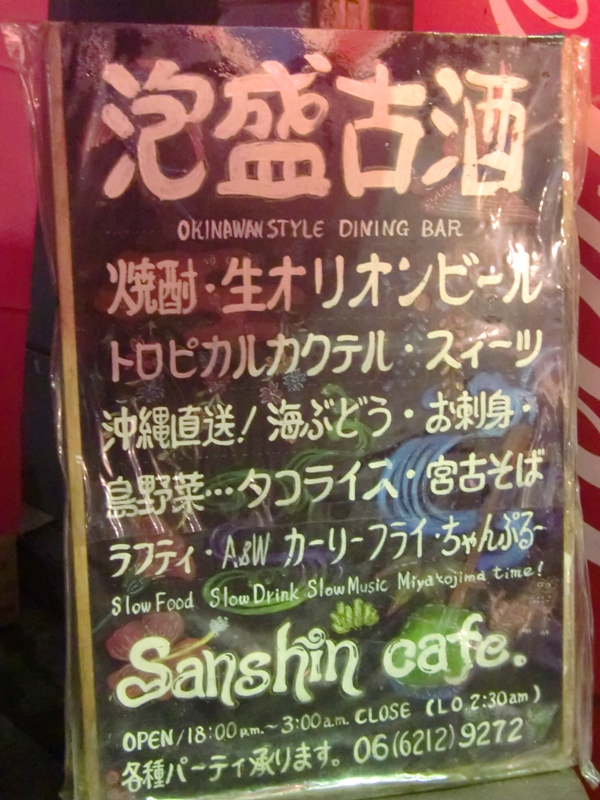 泡盛古酒
OKINAWAN STYLE DINING BAR
焼酎・生オリオンビール
トロピカルカクテル・スィーツ
沖縄直送!海ぶどう・お刺身・
島野菜…タコライス・宮古そば
ラフティ・A&W カーリーフライ・ちゃんぷるー
Slow Food Slow Drink Slow Music Miyakojima time!
Sanshin cafe.
OPEN/18:00p.m.~3:00a.m. CLOSE (L.O.2:30am)
各種パーティ承ります。06(6212)9272